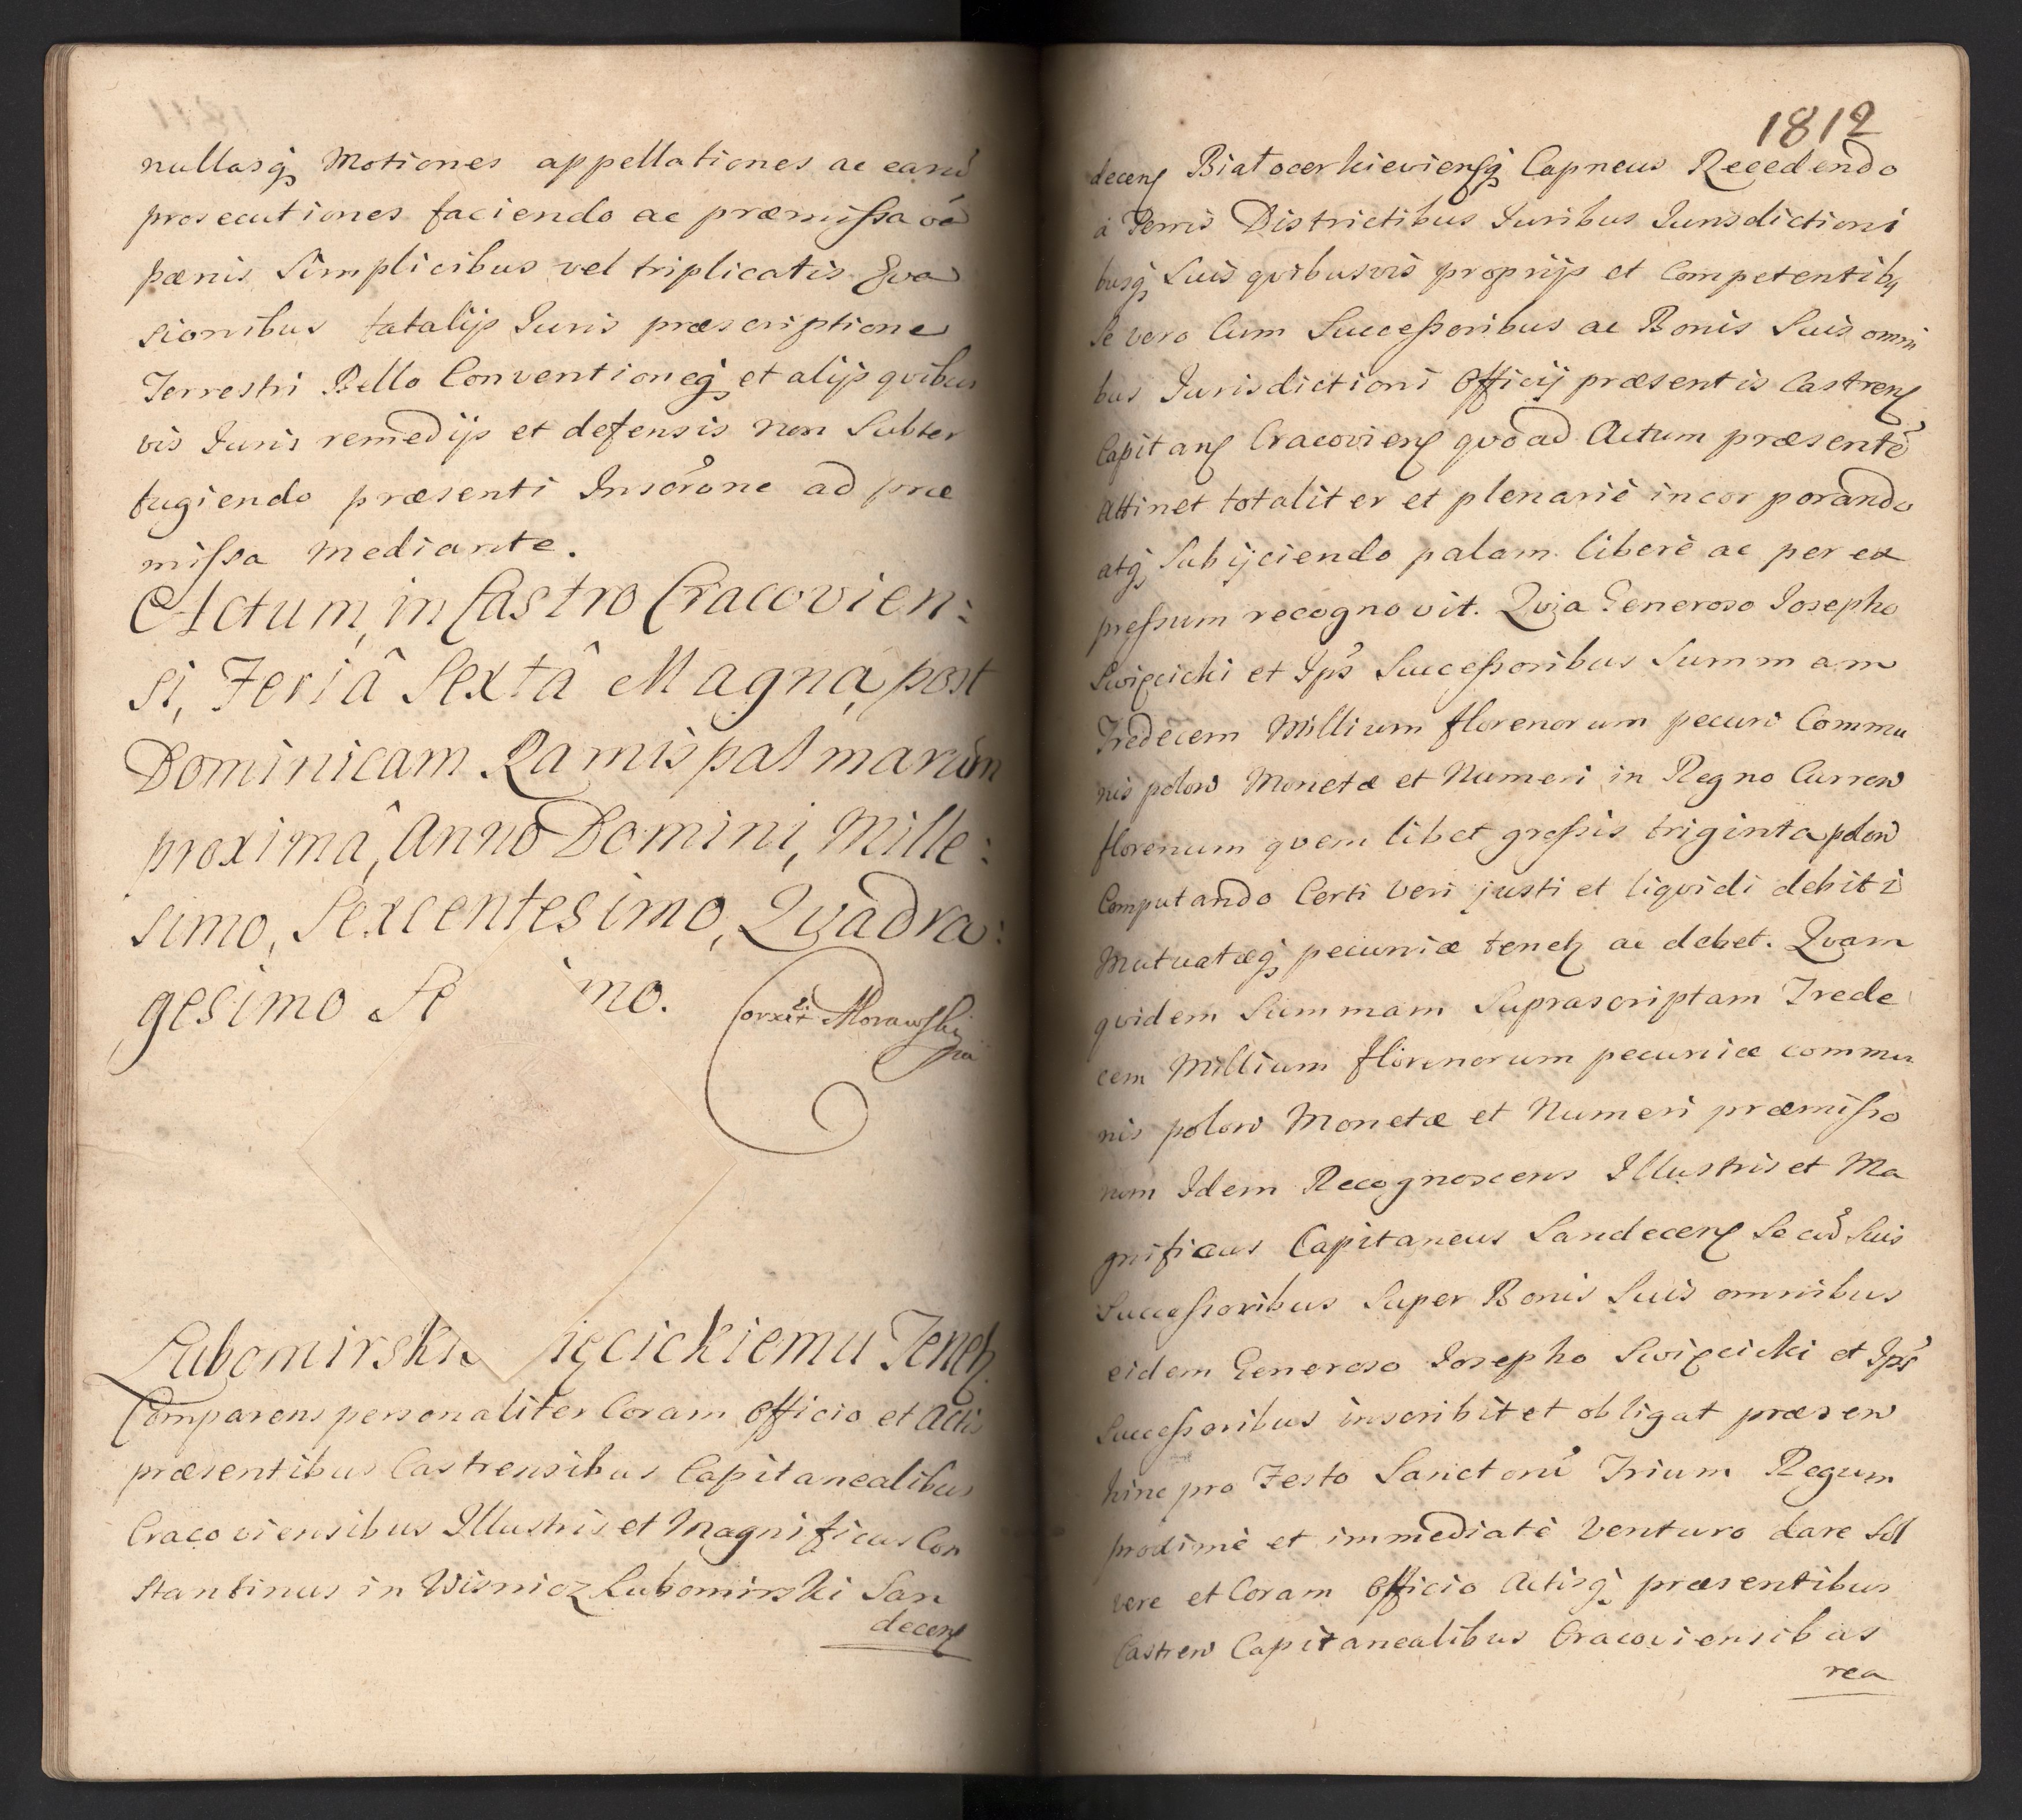 nullasq̨ Motiones appellationes ac earū
prosecutiones faciendo ac præmissa oā
pænis Simplicibus vel triplicatis Eva
sionibus fatalijs Iuris præscriptione
Terrestri Bello Conventioneq̨ et alijs qvibus
vis Iuris remedijs et defensis non Subter
fugiendo præsenti Inscrōne ad præ
missa mediante.
Actum, in Castro Cracovien:
si, Feriâ Sextâ Magna, post
Dominicam Ramispalmarum
proximâ, Anno Domini, Mille:
simo, Sexcentesimo, Qvadra:
gesimo Se mo.
Correxit Morawski
Lubomirski ięcickiemu Tenetz
Comparens personaliter Coram Officio et Actis
præsentibus Castrensibus Capitanealibus
Cracoviensibus Illustris et Magnificus Con
stantinus in Wisnicz Lubomirski San
decenꝭ
1812
decenꝭ Białocerkieviensq̨ Capneus Recedendo
à Terris Districtibus Iuribus Iurisdictioni
busq̨ Suis qvibusvis proprijs et Competentibꝯ
Se vero Cum Successoribus ac Bonis Suis omni
bus Iurisdictioni Officij præsentis Castrenꝭ
Capitanꝭ Cracovienꝭ qvoad Actum præsentē
Attinet totaliter et plenariè incorporando
atq̨ Subijciendo palam liberè ac per ex
pressum recognovit. Qvia Generoso Iosepho
Swięcicki et Ips Successoribus Summam
Tredecem Millium florenorum pecuni Commu
nis polon Monetæ et Numeri in Regno Curren
florenum qvemlibet grossis triginta polon
Computando Certi veri justi et liqvidi debiti
Mutuatæq̨ pecuniæ tenetz ac debet. Qvam
qvidem Summam Suprascriptam Trede
cem Millium florenorum pecuniæ commu
nis polon Monetæ et Numeri præmisso
rum Idem Recognoscens Illustris et Ma
gnificus Capitaneus Sandecenꝭ Se cū Suis
Successoribus Super Bonis Suis omnibus
eidem Generoso Iosepho Swięcicki et Ips
Successoribus inscribit et obligat præsen
hinc pro Festo Sanctorū Trium Regum
proximè et immediatè venturo dare Sol
vere et Coram Officio Actisq̨ præsentibus
Castren Capitanealibus Cracoviensibus
rea